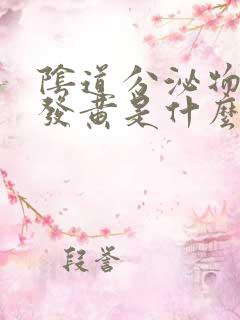 陰道分泌物
發黃是什麼
段譽